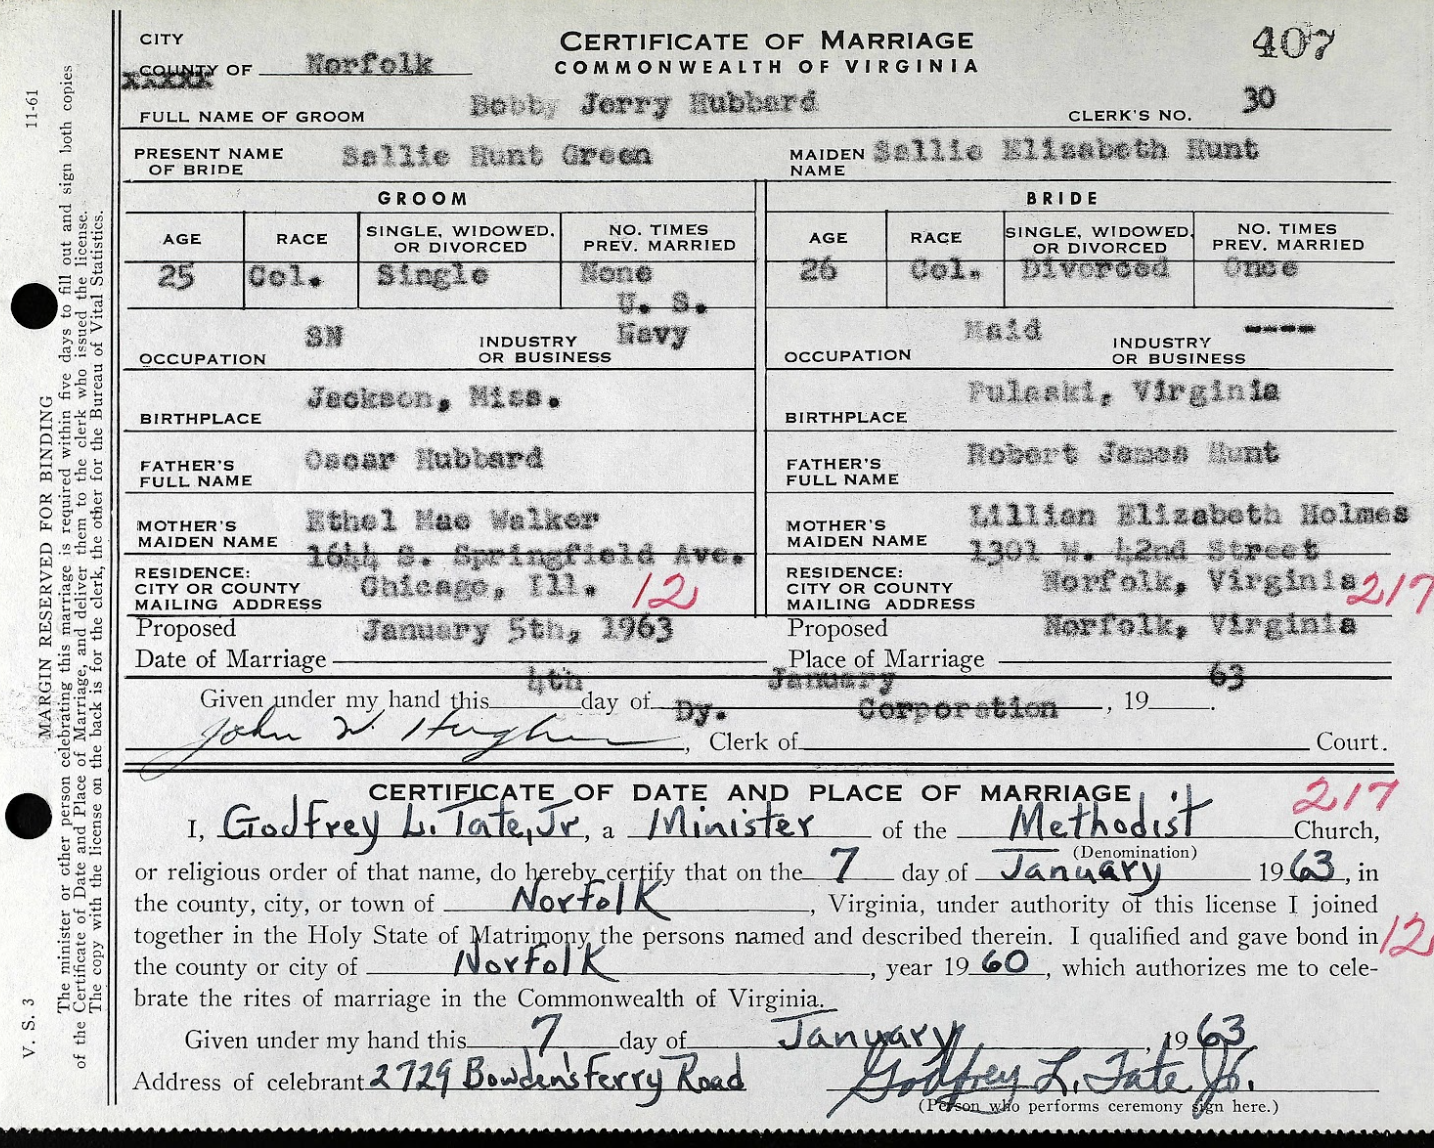 CITY
COUNTY OF Norfolk
xxxxx
CERTIFICATE OF MARRIAGE
COMMONWEALTH OF VIRGINIA
407
FULL NAME OF GROOM Bobby Jerry Hubbard CLERK'S NO. 30
PRESENT NAME OF BRIDE Sallie Hunt Green MAIDEN NAME Sallie Elizabeth Hunt
GROOM BRIDE
AGE RACE SINGLE, WIDOWED, OR DIVORCED NO. TIMES PREV. MARRIED AGE RACE SINGLE, WIDOWED, OR DIVORCED NO. TIMES PREV. MARRIED
25 Col. Single None 26 Col. Divorced Once
OCCUPATION SN INDUSTRY OR BUSINESS U. S. Navy OCCUPATION Maid INDUSTRY OR BUSINESS ----
BIRTHPLACE Jackson, Miss. BIRTHPLACE Pulaski, Virginia
FATHER'S FULL NAME Oscar Hubbard FATHER'S FULL NAME Robert James Hunt
MOTHER'S MAIDEN NAME Ethel Mae Walker MOTHER'S MAIDEN NAME Lillian Elizabeth Holmes
1644 S. Springfield Ave. 1301 W. 42nd Street
RESIDENCE: CITY OR COUNTY MAILING ADDRESS Chicago, Ill. 12 RESIDENCE: CITY OR COUNTY MAILING ADDRESS Norfolk, Virginia 217
Proposed Date of Marriage January 5th, 1963 Proposed Place of Marriage Norfolk, Virginia
Given under my hand this 4th day of January, 19 63.
John W. Hughes, Dy. Clerk of Corporation Court.
CERTIFICATE OF DATE AND PLACE OF MARRIAGE 217
I, Godfrey L. Tate, Jr, a Minister of the Methodist Church,
(Denomination)
or religious order of that name, do hereby certify that on the 7 day of January 1963, in
the county, city, or town of Norfolk, Virginia, under authority of this license I joined
together in the Holy State of Matrimony the persons named and described therein. I qualified and gave bond in 12
the county or city of Norfolk, year 1960, which authorizes me to cele-
brate the rites of marriage in the Commonwealth of Virginia.
Given under my hand this 7 day of January, 1963
Address of celebrant 2729 Bowden's Ferry Road Godfrey L. Tate Jr.
(Person who performs ceremony sign here.)
V. S. 3 11-61
MARGIN RESERVED FOR BINDING
The minister or other person celebrating this marriage is required within five days to fill out and sign both copies
of the Certificate of Date and Place of Marriage, and deliver them to the clerk who issued the license.
The copy with the license on the back is for the clerk, the other for the Bureau of Vital Statistics.